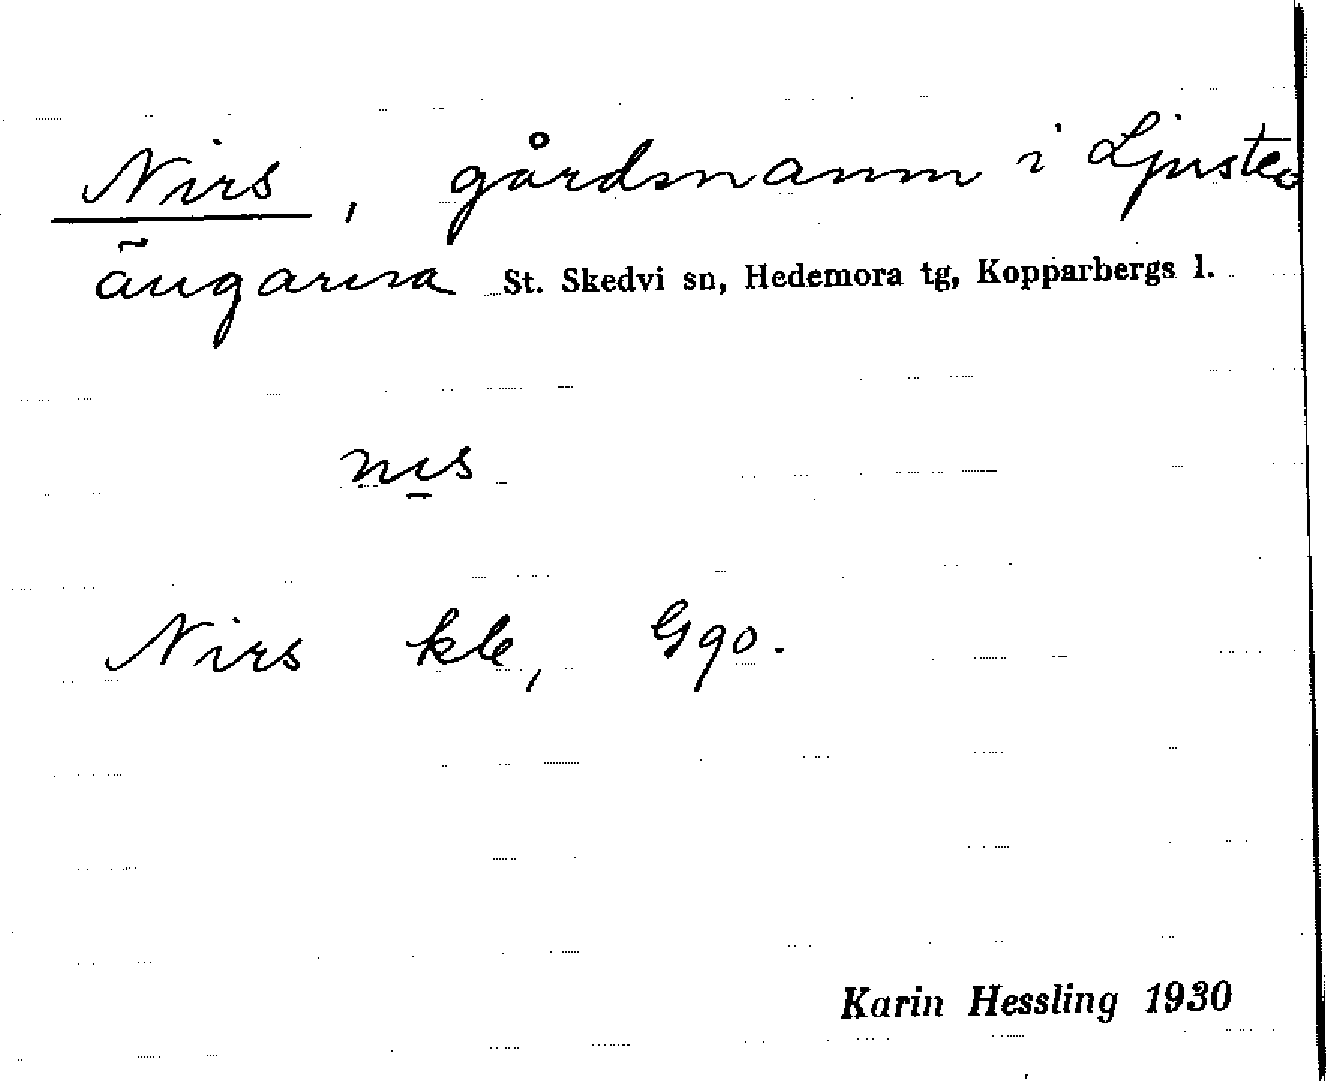 Nirs, gårdsnamn i Ljusteds
ängarna St. Skedvi sn, Hedemora tg, Kopparbergs l.
Nirs kle, Ggo.
Karin Hessling 1930